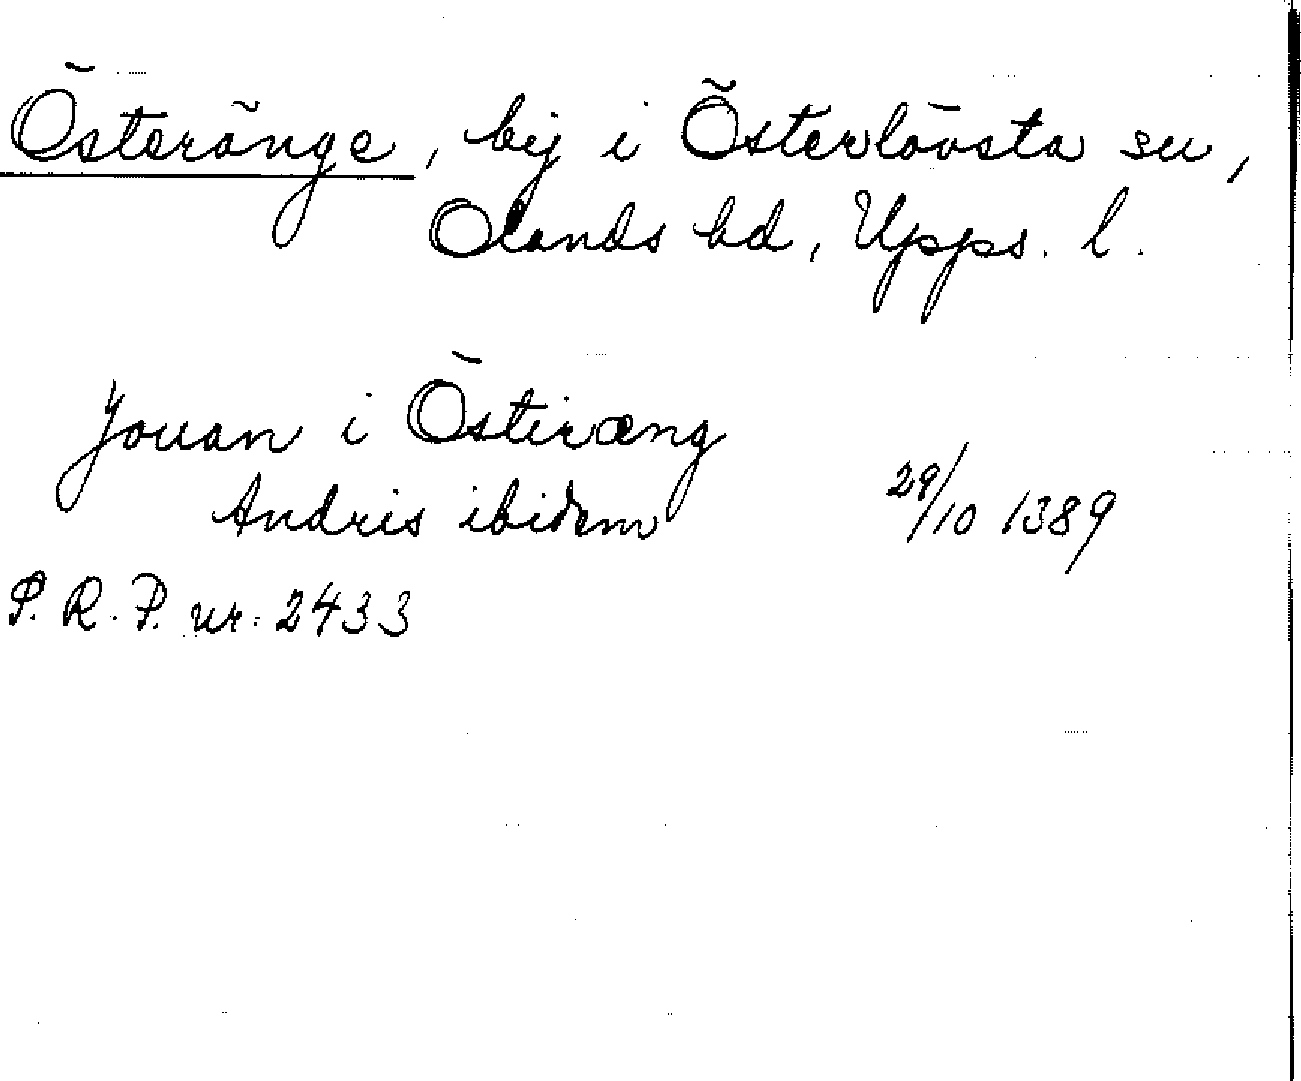 Österänge, by i Österlövsta sn,
Olands hd, Upps. l.
Jouan i Östiræng
Andris ibidem 29/10 1389
S. R. P. nr. 2433